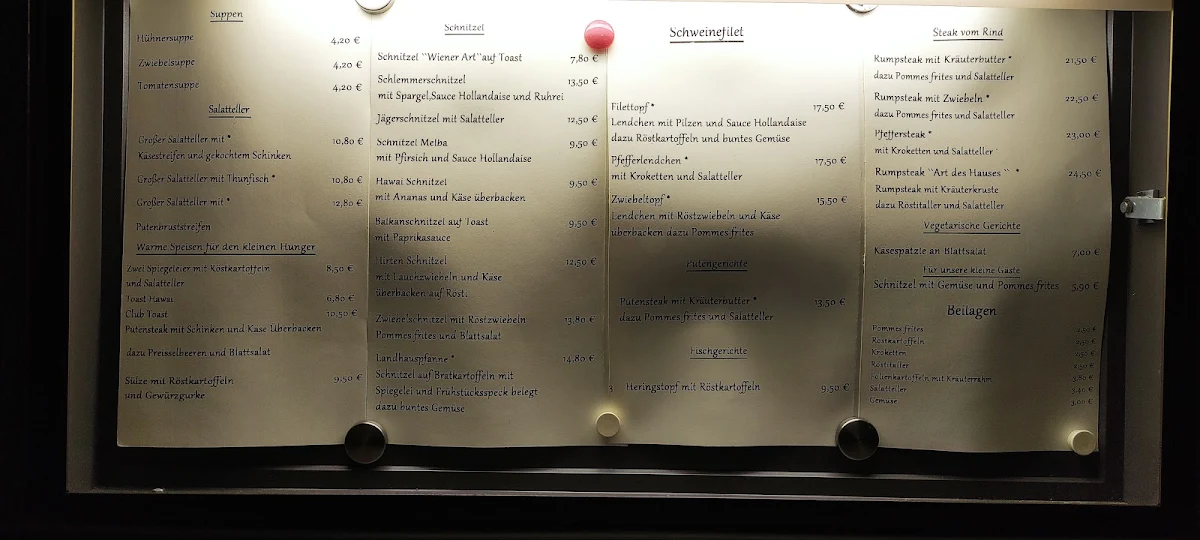 Suppen
Hühnersuppe 4,20 €
Zwiebelsuppe 4,20 €
Tomatensuppe 4,20 €
Salatteller
Großer Salatteller mit * 10,80 €
Käsestreifen und gekochtem Schinken
Großer Salatteller mit Thunfisch * 10,80 €
Großer Salatteller mit * 12,80 €
Putenbruststreifen
Warme Speisen für den kleinen Hunger
Zwei Spiegeleier mit Röstkartoffeln 8,50 €
und Salatteller
Toast Hawai 6,80 €
Club Toast 10,50 €
Putensteak mit Schinken und Käse Überbacken
dazu Preisselbeeren und Blattsalat
Sülze mit Röstkartoffeln 9,50 €
und Gewürzgurke
Schnitzel
Schnitzel ``Wiener Art``auf Toast 7,80 €
Schlemmerschnitzel 13,50 €
mit Spargel,Sauce Hollandaise und Ruhrei
Jägerschnitzel mit Salatteller 12,50 €
Schnitzel Melba 9,50 €
mit Pfirsich und Sauce Hollandaise
Hawai Schnitzel 9,50 €
mit Ananas und Käse überbacken
Balkanschnitzel auf Toast 9,50 €
mit Paprikasauce
Hirten Schnitzel 12,50 €
mit Lauchzwiebeln und Käse
überbacken auf Rösti
Zwiebelschnitzel mit Röstzwiebeln 13,80 €
Pommes frites und Blattsalat
Landhauspfanne * 14,80 €
Schnitzel auf Bratkartoffeln mit
Spiegelei und Frühstücksspeck belegt
dazu buntes Gemüse
Schweinefilet
Filettopf * 17,50 €
Lendchen mit Pilzen und Sauce Hollandaise
dazu Röstkartoffeln und buntes Gemüse
Pfefferlendchen * 17,50 €
mit Kroketten und Salatteller
Zwiebeltopf * 15,50 €
Lendchen mit Röstzwiebeln und Käse
überbacken dazu Pommes frites
Putengerichte
Putensteak mit Kräuterbutter * 13,50 €
dazu Pommes frites und Salatteller
Fischgerichte
Heringstopf mit Röstkartoffeln 9,50 €
Steak vom Rind
Rumpsteak mit Kräuterbutter * 21,50 €
dazu Pommes frites und Salatteller
Rumpsteak mit Zwiebeln * 22,50 €
dazu Pommes frites und Salatteller
Pfeffersteak * 23,00 €
mit Kroketten und Salatteller
Rumpsteak ``Art des Hauses `` * 24,50 €
Rumpsteak mit Kräuterkruste
dazu Röstitaller und Salatteller
Vegetarische Gerichte
Käsespätzle an Blattsalat 7,00 €
Für unsere kleine Gäste
Schnitzel mit Gemüse und Pommes frites 5,90 €
Beilagen
Pommes frites
Röstkartoffeln
Kroketten
Röstitaller
Folienkartoffeln mit Kräuterrahm 3,80 €
Salatteller 3,40 €
Gemüse 3,00 €